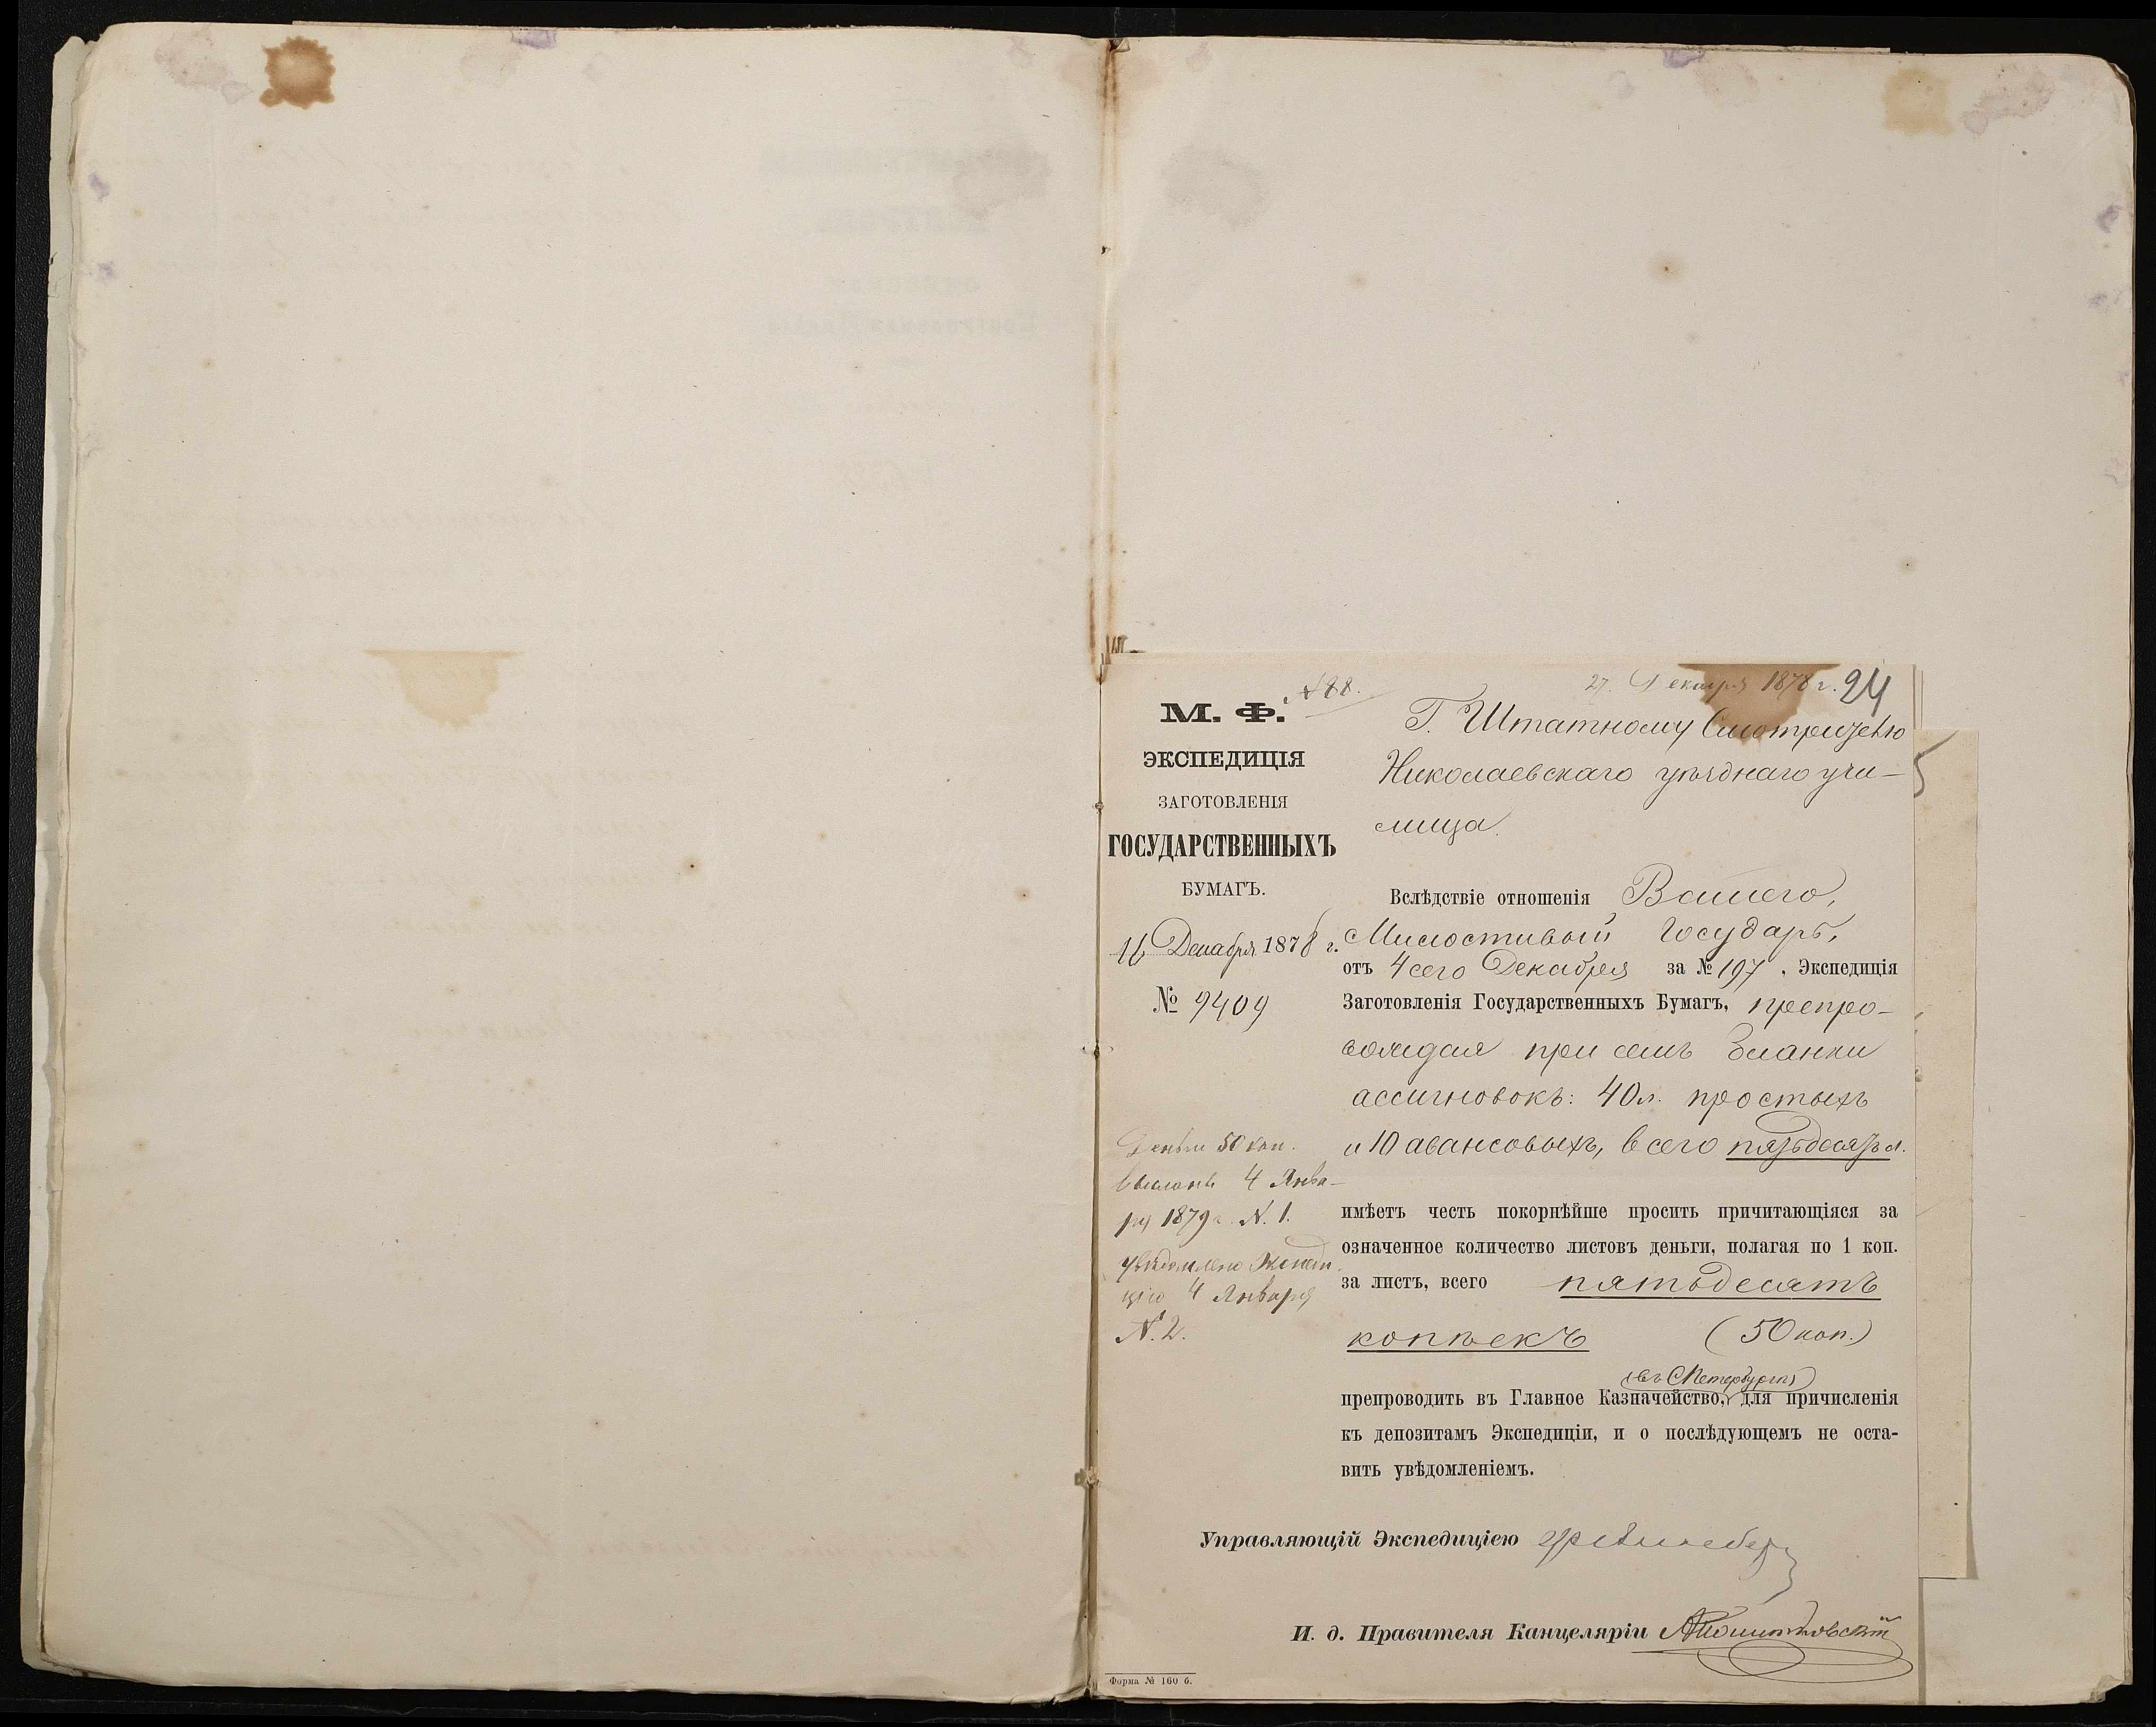 № 188.
27. Декабря 1878 г. 94
М. Ф.
ЭКСПЕДИЦІЯ
ЗАГОТОВЛЕНІЯ
ГОСУДАРСТВЕННЫХЪ
БУМАГЪ.
16 Декабря 1878 г.
№ 9409
Деньги 50 коп.
высланы 4 Янва-
ря 1879 г. N. 1.
увѣдомлено Экспеди
цію 4 Января
N. 2.
Г. Штатному Смотрителю
Николаевскаго уѣзднаго учи-
лища.
Вслѣдствіе отношенія Вашего,
Милостивый Государь,
отъ 4 сего Декабря за № 197, Экспедиція
Заготовленія Государственныхъ Бумагъ, препро-
вождая при семъ бланки
ассигновокъ: 40 л. простыхъ
и 10 авансовыхъ, всего пятьдесятъ л.
имѣетъ честь покорнѣйше просить причитающіяся за
означенное количество листовъ деньги, полагая по 1 коп.
за листъ, всего пятьдесятъ
копѣекъ (50 коп.)
(въ СПетербургѣ)
препроводить въ Главное Казначейство, для причисленія
къ депозитамъ Экспедиціи, и о послѣдующемъ не оста-
вить увѣдомленіемъ.
Управляющій Экспедиціею
И. д. Правителя Канцеляріи
Форма № 160 б.